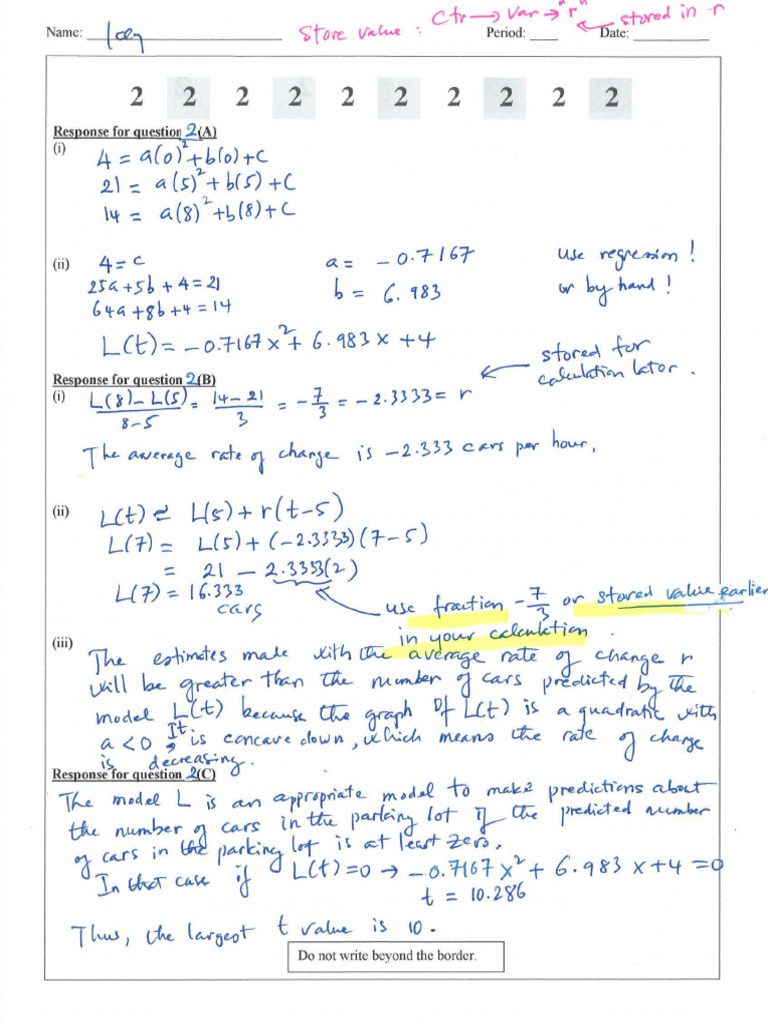 Store value : Ctr → var → "r" ← stored in r
Name: Period: Date:
2 2 2 2 2 2 2 2 2 2
Response for question 2(A)
(i)
4 = a(0)² + b(0) + c
21 = a(5)² + b(5) + c
14 = a(8)² + b(8) + c
(ii)
4 = c
25a + 5b + 4 = 21
64a + 8b + 4 = 14
a = -0.7167
b = 6.983
use regression!
or by hand!
L(t) = -0.7167x² + 6.983x + 4
stored for
calculation later.
Response for question 2(B)
(i)
L(8)-L(5)/8-5 = 14-21/3 = -7/3 = -2.3333 = r
The average rate of change is -2.333 cars per hour.
(ii)
L(t) ≈ L(5) + r(t-5)
L(7) = L(5) + (-2.3333)(7-5)
= 21 - 2.3333(2)
L(7) = 16.333
cars
use fraction -7/3 or stored value earlier
in your calculation.
(iii)
The estimates made with the average rate of change r
will be greater than the number of cars predicted by the
model L(t) because the graph of L(t) is a quadratic with
a < 0; It is concave down, which means the rate of change
is decreasing.
Response for question 2(C)
The model L is an appropriate model to make predictions about
the number of cars in the parking lot if the predicted number
of cars in the parking lot is at least zero.
In that case if L(t) = 0 → -0.7167x² + 6.983x + 4 = 0
t = 10.286
Thus, the largest t value is 10.
Do not write beyond the border.